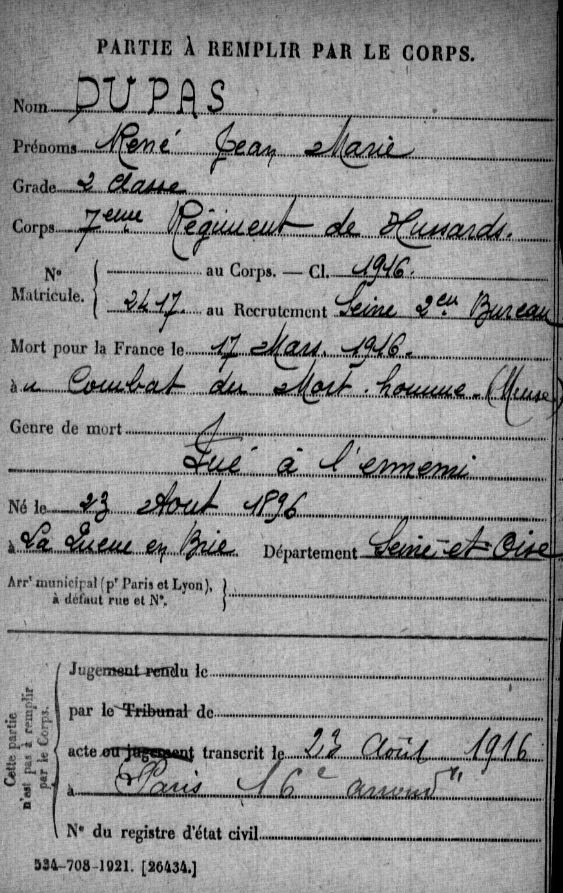 PARTIE À REMPLIR PAR LE CORPS.
Nom DUPAS
Prénoms René Jean Marie
Grade 2 classe
Corps 7eme Régiment de Hussards.
N° Matricule. au Corps. — Cl. 1916.
2417. au Recrutement Seine 2eu Bureau
Mort pour la France le 17 Mars. 1916.
à u Combat du Mort-homme-(Meuse)
Genre de mort
Tué à l'ennemi
Né le 23 Aout 1896
à La Queue en Brie Département Seine-et-Oise
Arrt municipal (pr Paris et Lyon), à défaut rue et N°.
Cette partie n'est pas à remplir par le Corps.
Jugement rendu le
par le Tribunal de
acte ou jugement transcrit le 23 Août 1916
à Paris 16e arrondt
N° du registre d'état civil
534-708-1921. [26434.]